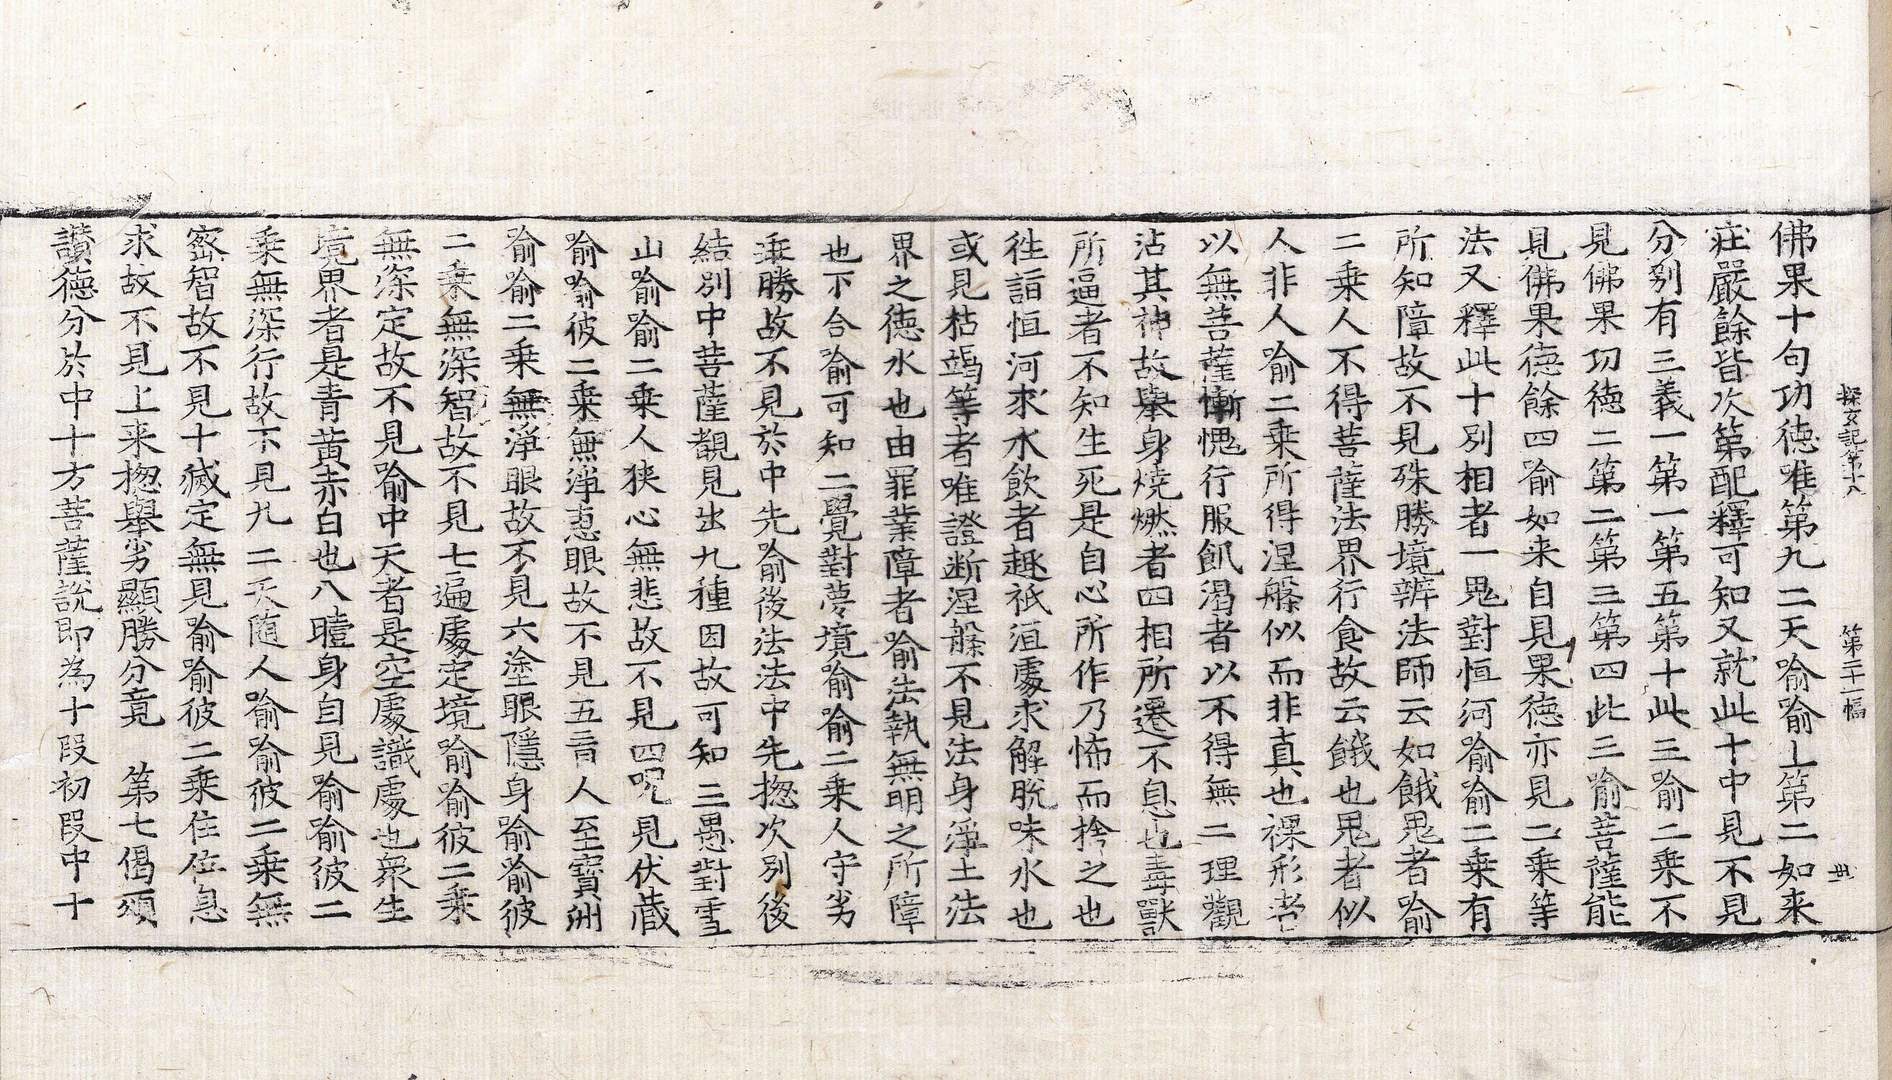 探玄記第十八 第二十一幅 世
佛果十句功德唯第九二天喻喻上第二如来
莊嚴餘皆次第配釋可知又就此十中見不見
分别有三義一第一第五第十此三喻二乗不
見佛果功德二第二第三第四此三喻菩薩能
見佛果德餘四喻如来自見果德亦見二乗等
法又釋此十别相者一鬼對恒河喻喻二乗有
所知障故不見殊勝境辨法師云如餓鬼者喻
二乗人不得菩薩法界行食故云餓也鬼者似
人非人喻二乗所得涅槃似而非真也裸形者
以無菩薩慚愧行服飢渴者以不得無二理觀
沾其神故舉身燒燃者四相所遷不息也毒獸
所逼者不知生死是自心所作乃怖而捨之也
徃詣恒河求水飲者趣祇洹處求解脱味水也
或見枯竭等者唯證断涅槃不見法身淨土法
界之德水也由罪業障者喻法執無明之所障
也下合喻可知二覺對夢境喻喻二乗人守劣
乗勝故不見於中先喻後法法中先揔次别後
結别中菩薩覩見出九種因故可知三愚對雪
山喻喻二乗人狭心無悲故不見四呪見伏蔵
喻喻彼二乗無淨恵眼故不見五盲人至寶洲
喻喻二乗無淨眼故不見六塗眼隱身喻喻彼
二乗無深智故不見七遍處定境喻喻彼二乗
無深定故不見喻中天者是空處識處也衆生
境界者是青黄赤白也八曀身自見喻喻彼二
乗無深行故不見九二天随人喻喻彼二乗無
宻智故不見十滅定無見喻喻彼二乗住位息
求故不見上来揔舉劣顯勝分竟 第七偈頌
讃德分於中十方菩薩說即為十段初段中十